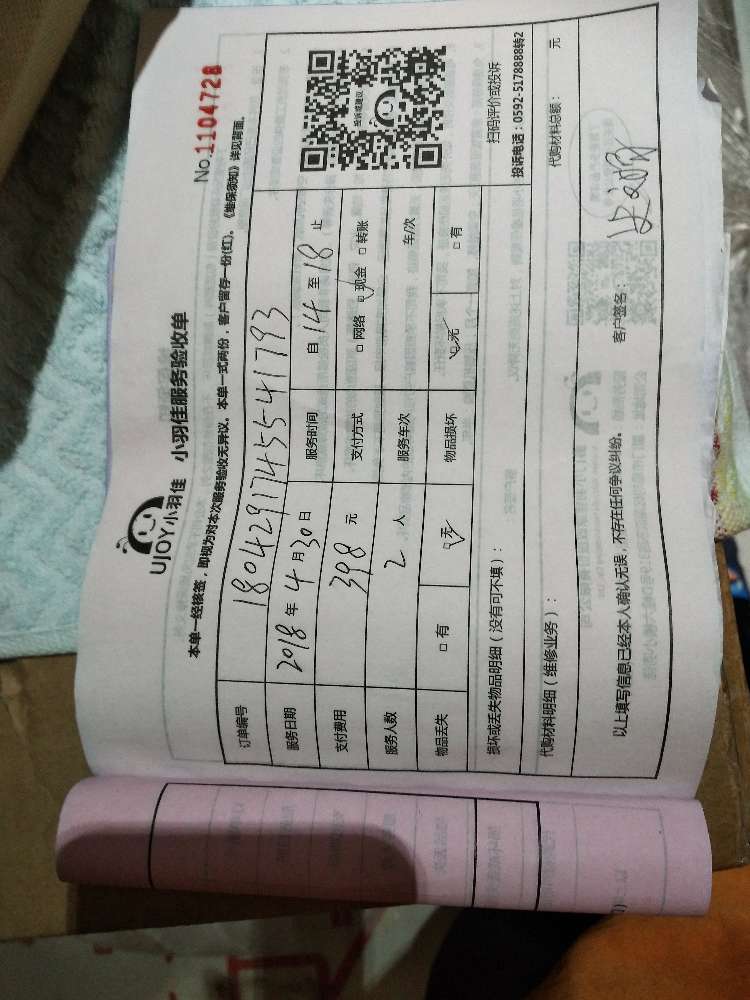 No.1104728
UJOY小羽佳 小羽佳服务验收单
本单一经核签，即视为对本次服务验收无异议。本单一式两份，客户留存一份(红)。《维保须知》详见背面。
订单编号 18042917455541793
服务日期 2018年4月30日 服务时间 自14至18止
支付费用 398元 支付方式 □网络 ☑现金 □转账
服务人数 2人 服务车次 车/次
物品丢失 □有 ☑无 物品损坏 ☑无 □有
投诉或建议
扫码评价或投诉
投诉电话：0592-5178888转2
损坏或丢失物品明细（没有可不填）：
代购材料明细（维修业务）： 代购材料总额： 元
以上填写信息已经本人确认无误，不存在任何争议纠纷。 客户签名：